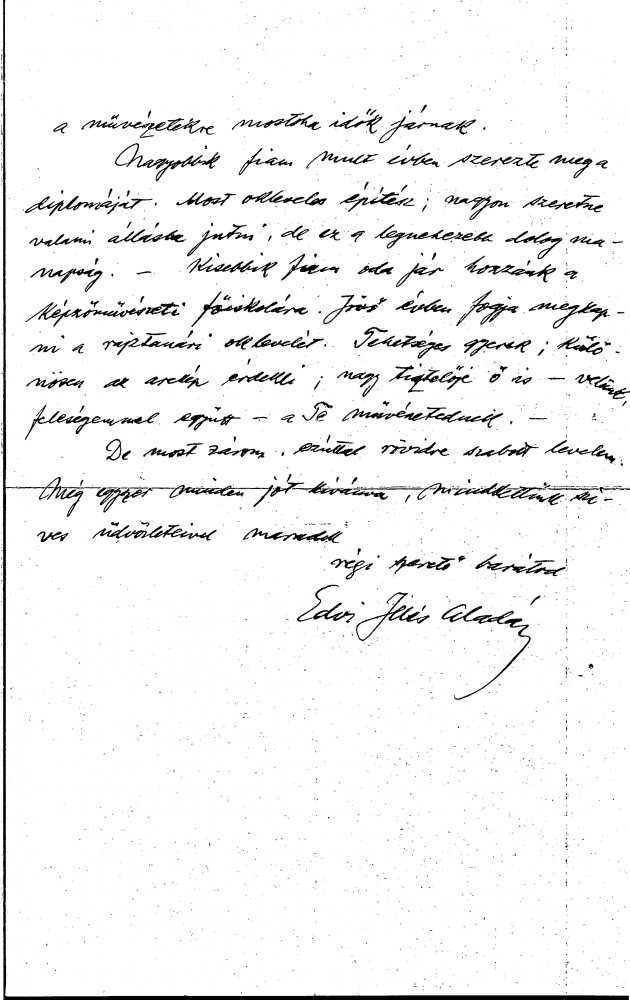 a művészetekre mostoha idők járnak.
Nagyobbik fiam mult évben szerezte meg a
diplomáját. Most okleveles építész; nagyon szeretne
valami állásba jutni, de ez a legnehezebb dolog ma-
napság. — Kisebbik fiam oda jár hozzánk a
Képzőművészeti főiskolára. Jövő évben fogja megkap-
ni a rajztanári oklevelét. Tehetséges gyerek; külö-
nösen az arckép érdekli; nagy tisztelője ő is — velünk,
feleségemmel együtt — a Te művészetednek. —
De most zárom, ezúttal rövidre szabott levelem.
Még egyszer minden jót kívánva, mindkettőnk szí-
ves üdvözleteivel maradok
régi szerető barátod
Edvi Illés Aladár